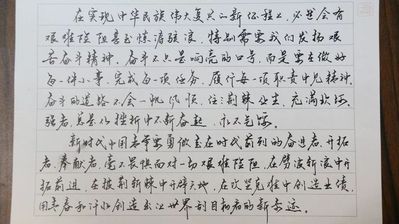 在实现中华民族伟大复兴的新征程上，必然会有
艰难险阻甚至惊涛骇浪，特别需要我们发扬艰
苦奋斗精神。奋斗不只是响亮的口号，而是要在做好
每一件小事、完成每一项任务、履行每一项职责中见精神。
奋斗的道路不会一帆风顺，往往荆棘丛生、充满坎坷。
强者，总是从挫折中不断奋起、永不气馁。
新时代中国青年要勇做走在时代前列的奋进者、开拓
者、奉献者，毫不畏惧面对一切艰难险阻，在劈波斩浪中开
拓前进，在披荆斩棘中开辟天地，在攻坚克难中创造业绩，
用青春和汗水创造出让世界刮目相看的新奇迹。